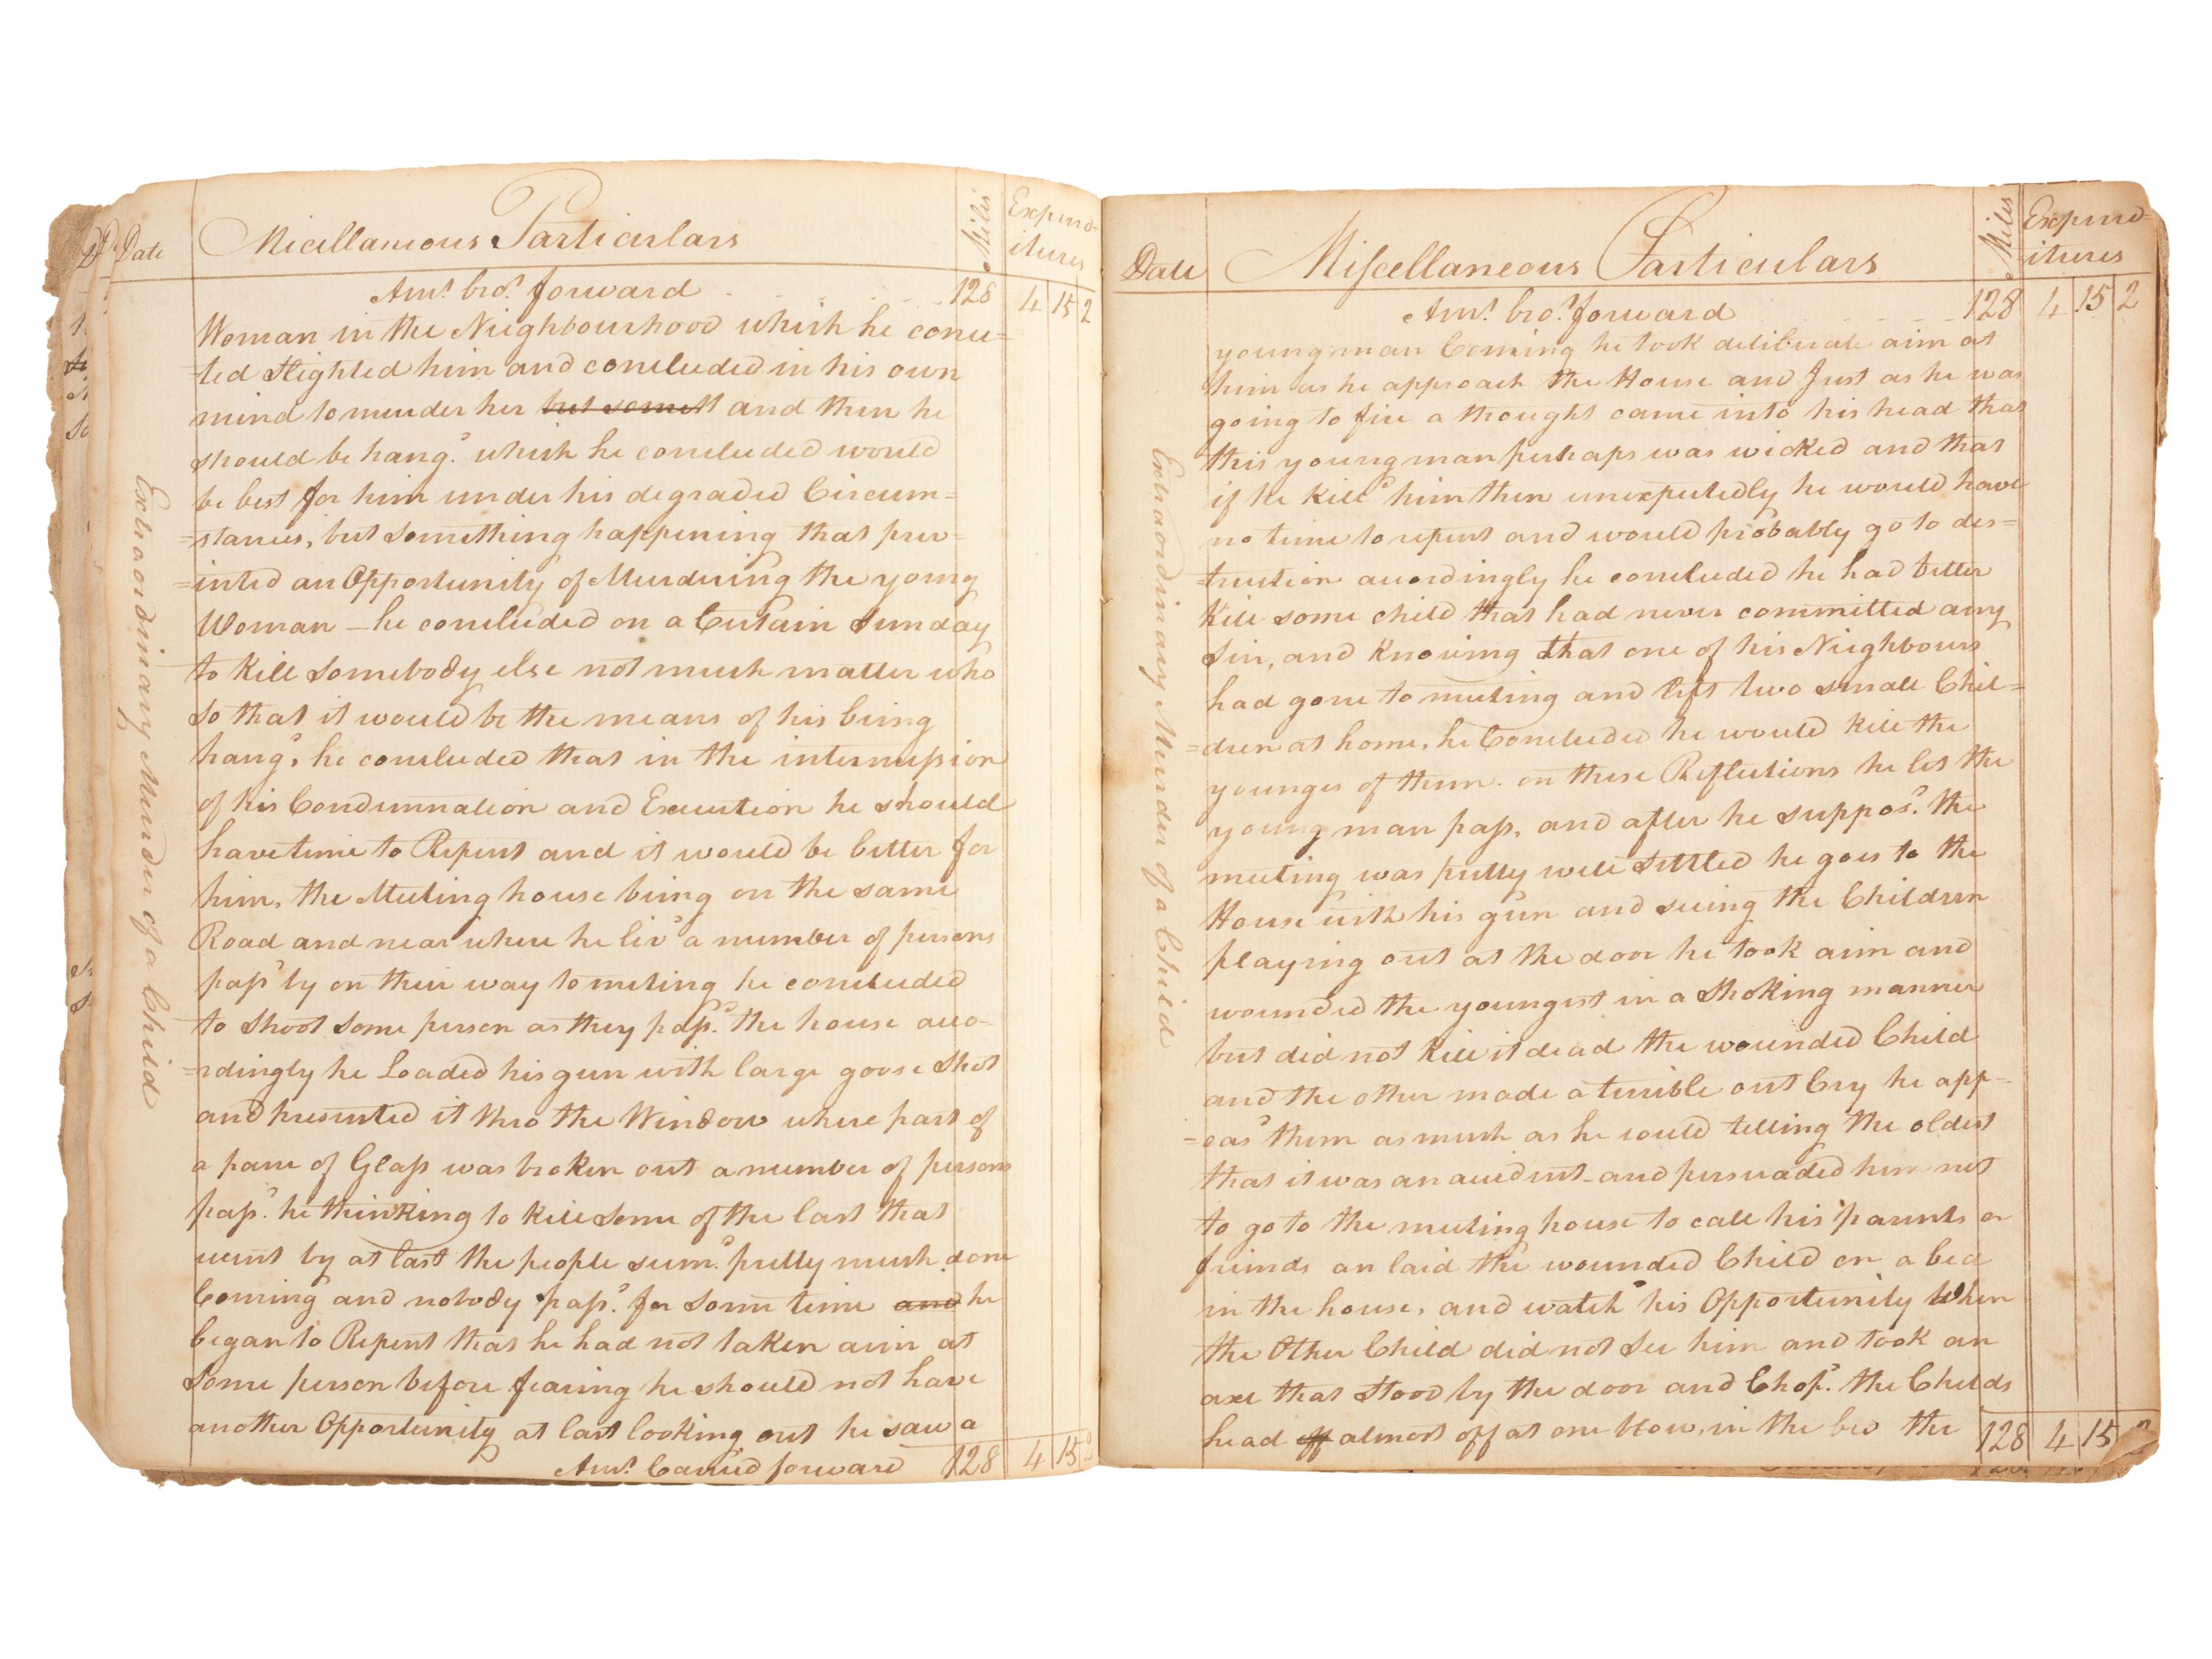 Date Micellaneous Particulars Miles Expend-
itures
Amt. bro.t forward 128 4 15 2
Woman in the Nieghbourhood which he conce=
=ted Slighted him and concluded in his own
mind to murder her but somett and then he
should be hang.d which he concluded would
be best for him under his degraded Circum=
=stances, but Something happening that prev=
=ented an Opportunity of Murdering the young
Woman – he concluded on a Certain Sunday
to Kill Somebody else not much matter who
So that it would be the means of his being
hang.d he concluded that in the intermission
of his Condemnation and Execution he should
have time to Repent and it would be better for
him, the Meeting house being on the same
Road and near where he liv.d a number of persons
pass.d by on their way to meting he concluded
to Shoot Some person as they pass.d the house acco-
=rdingly he Loaded his gun with large goose Shot
and presented it thro the Window where part of
a pane of Glass was broken out a number of persons
pass.d he thinking to kill Some of the last that
went by at last the people seem.d pretty much done
Coming and nobody pass.d for Some time and he
began to Repent that he had not taken aim at
Some person before fearing he should not have
another Opportunity at last looking out he saw a
Amt. Carried forward 128 4 15 2
Extraordinary Murder of a Child
Date Miscellaneous Particulars Miles Expend=
-itures
Amt. bro.t forward 128 4 15 2
young man Coming he took deliberate aim at
him as he approach the House and Just as he was
going to fire a thought came into his head that
this young man perhaps was wicked and that
if he kill.d him then unexpectedly he would have
no time to repent and would probably go to des=
=truction accordingly he concluded he had better
Kill some child that had never committed any
Sin, and Knowing that one of his Nieghbours
had gone to meeting and left two small Chil=
=dren at home, he Concluded he would kill the
younges of them. on these Reflections he let the
young man pass, and after he suppos.d the
meeting was pretty well Settled he goes to the
House with his gun and seeing the Children
playing out at the door he took aim and
wounded the youngest in a Shoking manner
but did not kill it dead the wounded Child
and the other made a terrible out Cry he app-
=eas.d them as much as he could telling the oldest
that it was an accident – and persuaded him not
to go to the meeting house to call his parents or
friends an laid the wounded Child on a bed
in the house, and watch.d his Opportunity When
the Other Child did not See him and took an
axe that Stood by the door and Chop.d the Childs
head off almost off at one blow, in the bed the 128 4 15 2
Extraordinary Murder of a Child